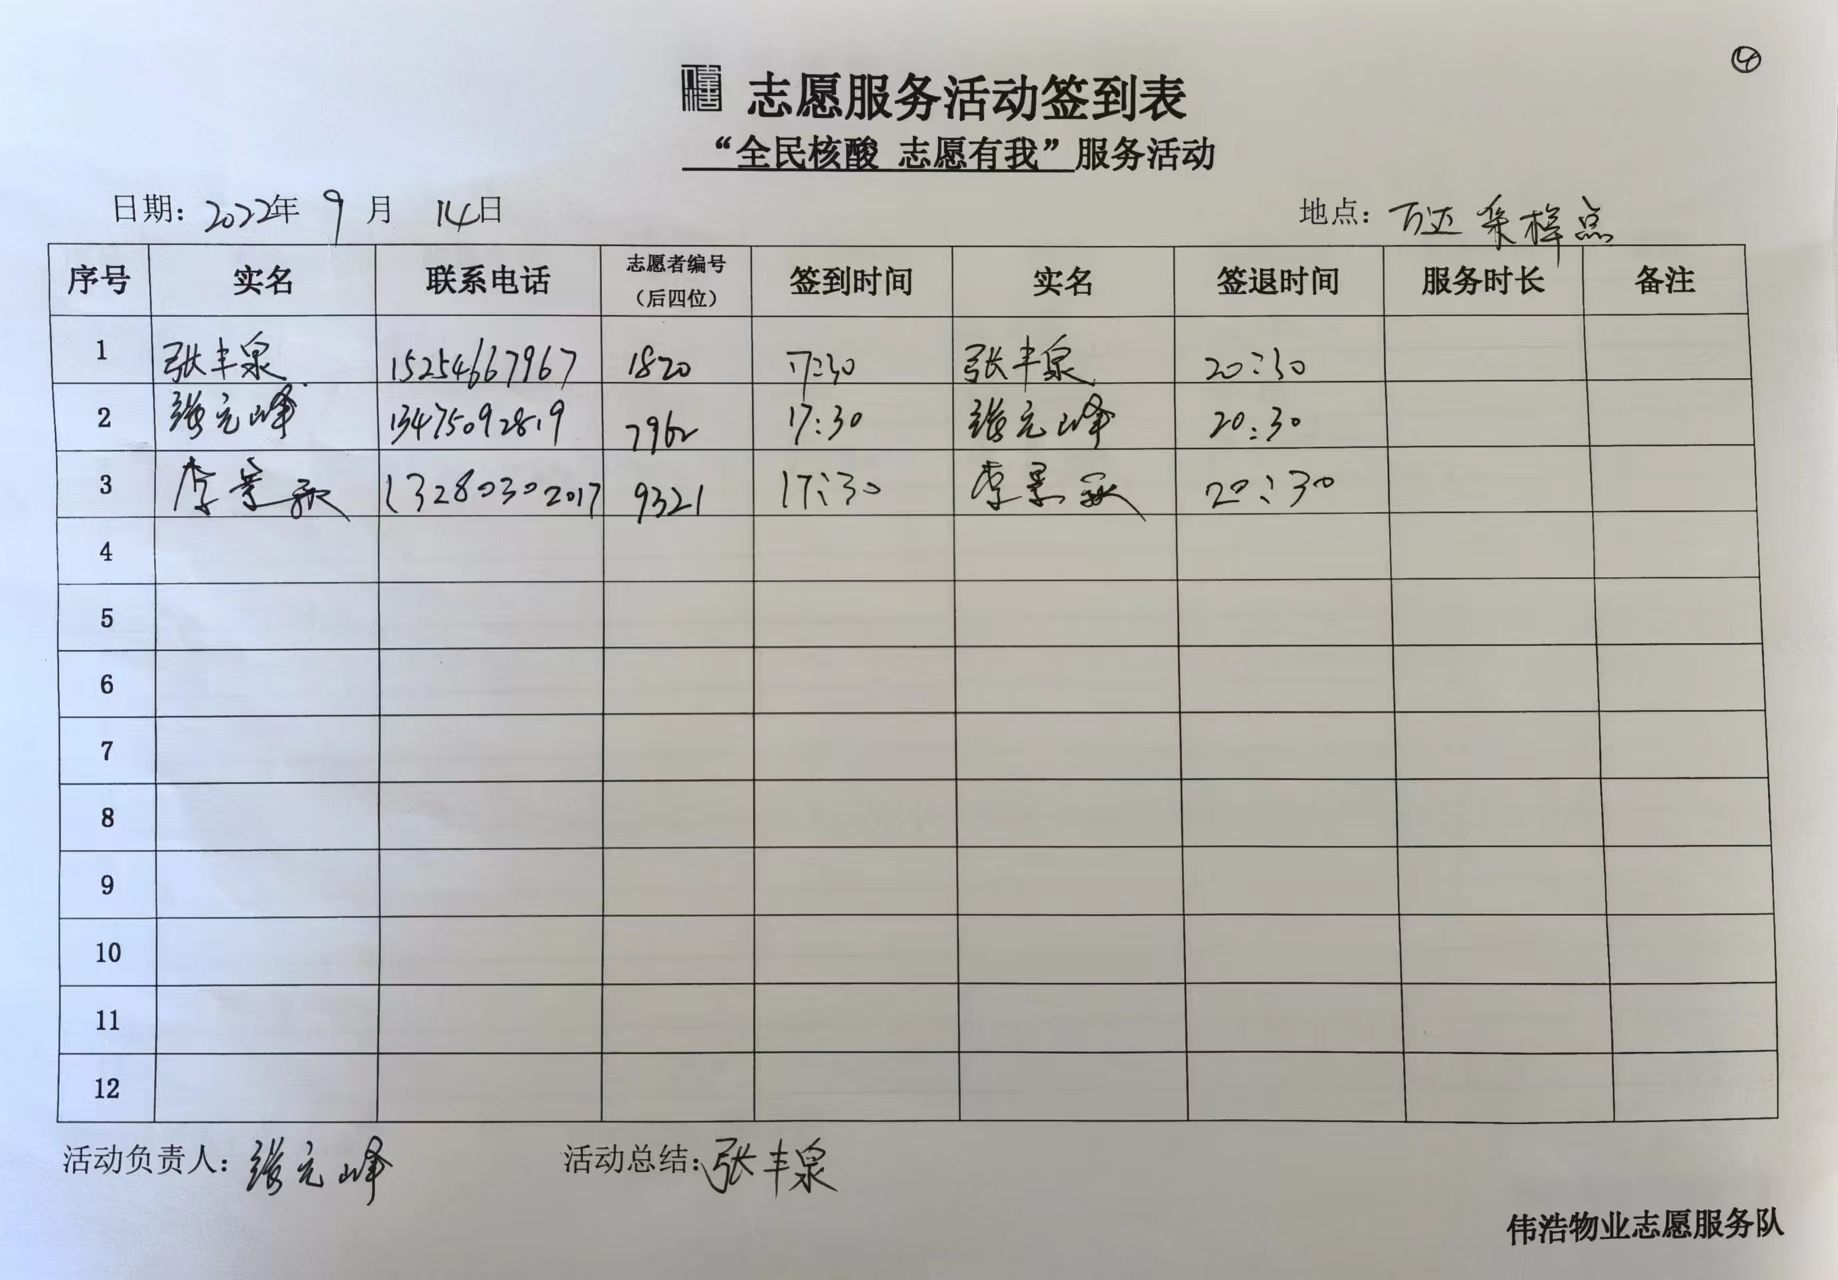 ④
志愿服务活动签到表
“全民核酸 志愿有我”服务活动
日期：2022年 9月 14日 地点：万达采样点
序号 实名 联系电话 志愿者编号（后四位） 签到时间 实名 签退时间 服务时长 备注
1 张丰泉 15254667967 1820 17:30 张丰泉 20:30
2 张元峰 13475092819 7962 17:30 张元峰 20:30
3 李景 13280302017 9321 17:30 李景 20:30
4
5
6
7
8
9
10
11
12
活动负责人：张元峰 活动总结：张丰泉
伟浩物业志愿服务队